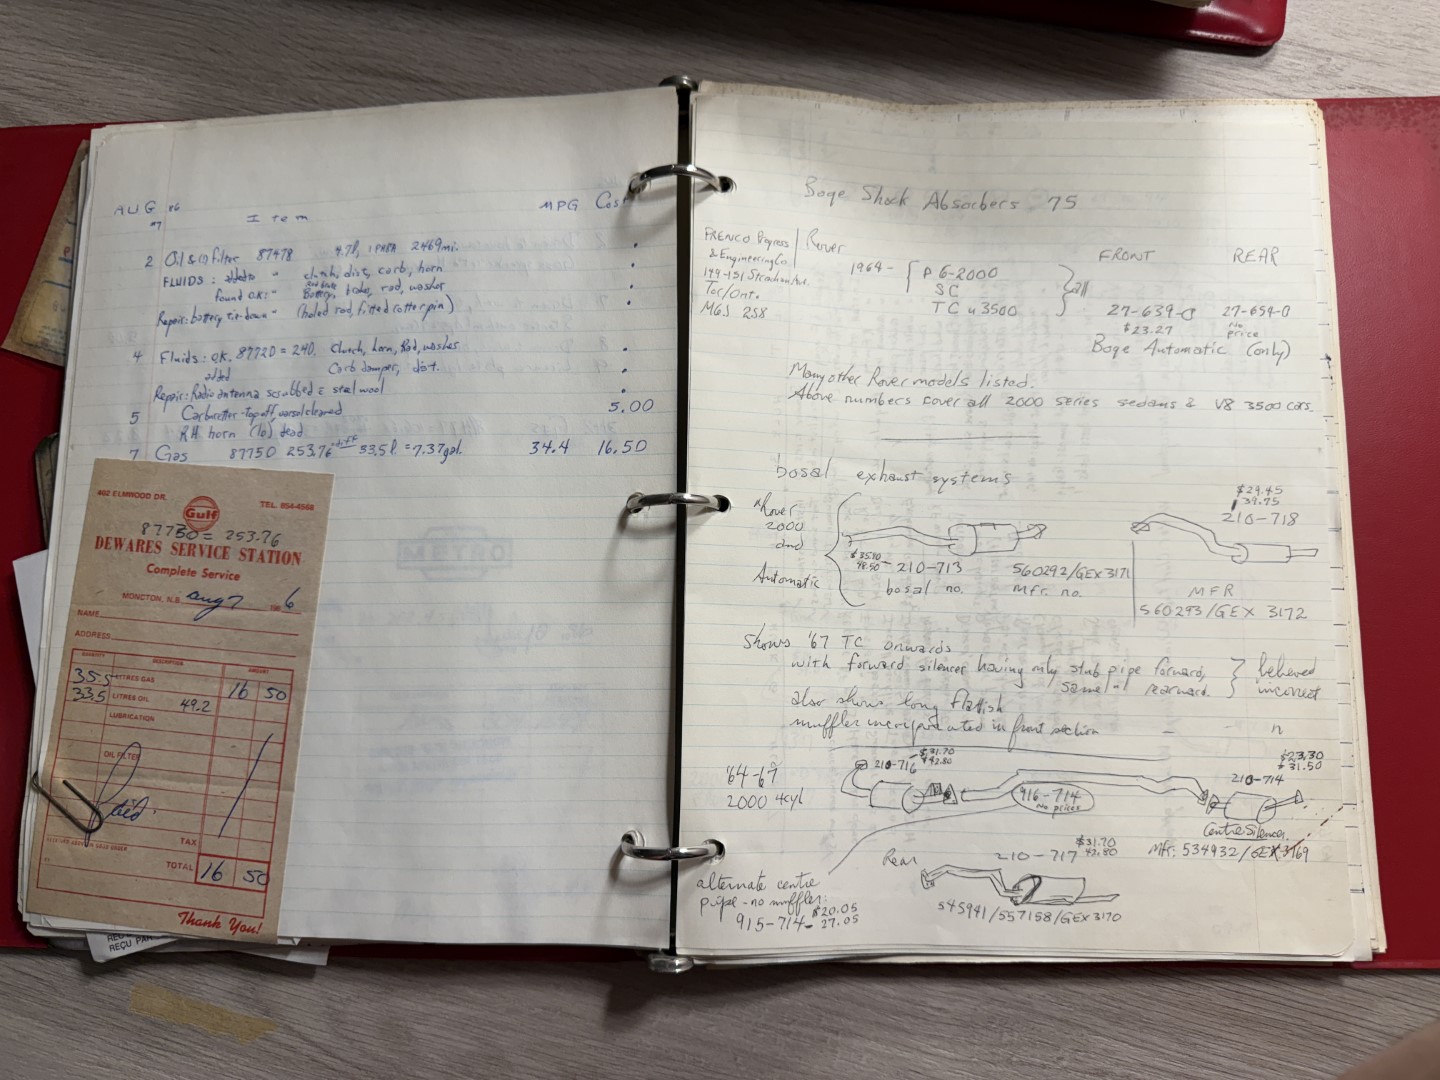 AUG 86
Item MPG Cost
2 Oil & (1) filter 87478 4.7l, 2469mi.
FLUIDS: added " clutch, dist, carb, horn
found O.K.: " Battery, brake, rad, washer
Repair: battery tie-down " (holed rod, fitted cotter pin)
4 Fluids: O.K. 87720 = 240. Clutch, horn, Rad, washer
added Carb damper, dist.
Repair: Radio antenna scrubbed c steel wool
5 Carburettor - top off, cleaned 5.00
RH horn (lo) dead
7 Gas 87750 253.76 diff 33.5l = 7.37gal. 34.4 16.50
402 ELMWOOD DR. TEL. 854-4568
Gulf
87750 = 253.76
DEWARES SERVICE STATION
Complete Service
MONCTON, N.B. Aug 7 198 6
NAME
ADDRESS
QUANTITY DESCRIPTION AMOUNT
35.5 LITRES GAS 16 50
33.5 LITRES OIL 49.2
LUBRICATION
OIL FILTER
Paid
TAX
TOTAL 16 50
Thank You!
REÇU PAR
METRO
Boge Shock Absorbers 75
PRENCO Progress
& Engineering Co.
149-151 Strachan Ave.
Tor/Ont.
M6J 2S8
Rover
FRONT REAR
1964- P6-2000
SC
TC & 3500
all
27-639-0 27-654-0
$23.27 No price
Boge Automatic (only)
Many other Rover models listed.
Above numbers cover all 2000 series sedans & V8 3500 cars.
bosal exhaust systems
"Rover
2000
and
Automatic
$29.45
39.75
210-718
$35.80
48.50 - 210-713 560292/GEX 3171
bosal no. mfr. no.
MFR
560293/GEX 3172
Shows '67 TC onwards
with forward silencer having only stub pipe forward,
same " rearward.
believed
incorrect
also shows long flattish
muffler incorporated in front section - - "
'64-67
2000 4cyl
210-716 - $31.70
$42.80
916-714
No prices
$23.30
$31.50
210-714
Centre Silencer.
Mfr. 534932/GEX 3169
Rear 210-717 $31.70
42.80
545941/557158/GEX 3170
alternate centre
pipe - no muffler:
915-714 - $20.05
27.05